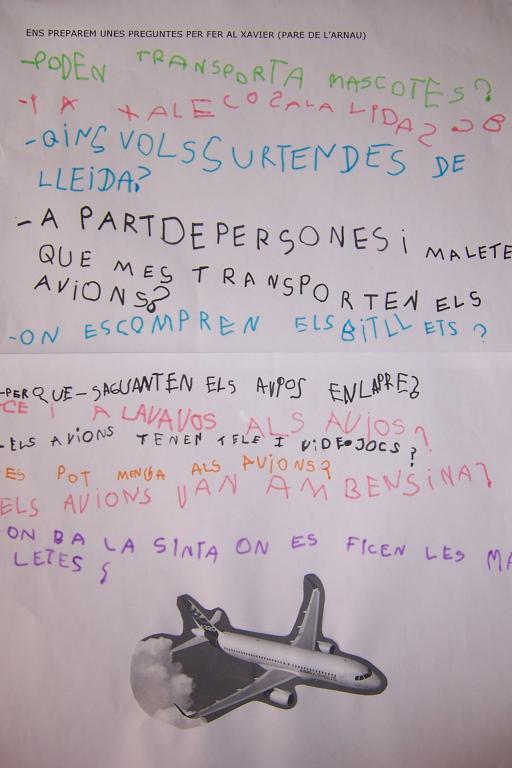 ENS PREPAREM UNES PREGUNTES PER FER AL XAVIER (PARE DE L'ARNAU)
-PODEN TRANSPORTA MASCOTES?
-I A TALECOSALA LIDAS
-QINS VOLS SURTENDES DE
LLEIDA?
-A PARTDEPERSONES i MALETE
QUE MES TRANSPORTEN ELS
AVIONS?
-ON ESCOMPREN ELS BITLLETS?
-PERQUE-SAGUANTEN ELS AVIOS ENLAIRE?
CE i A LAVAVOS ALS AVIOS?
-ELS AVIONS TENEN TELE I VIDEOJOCS?
ES POT MENGA ALS AVIONS?
ELS AVIONS VAN AM BENSINA?
ON BA LA SINTA ON ES FICEN LES MA
LETES?